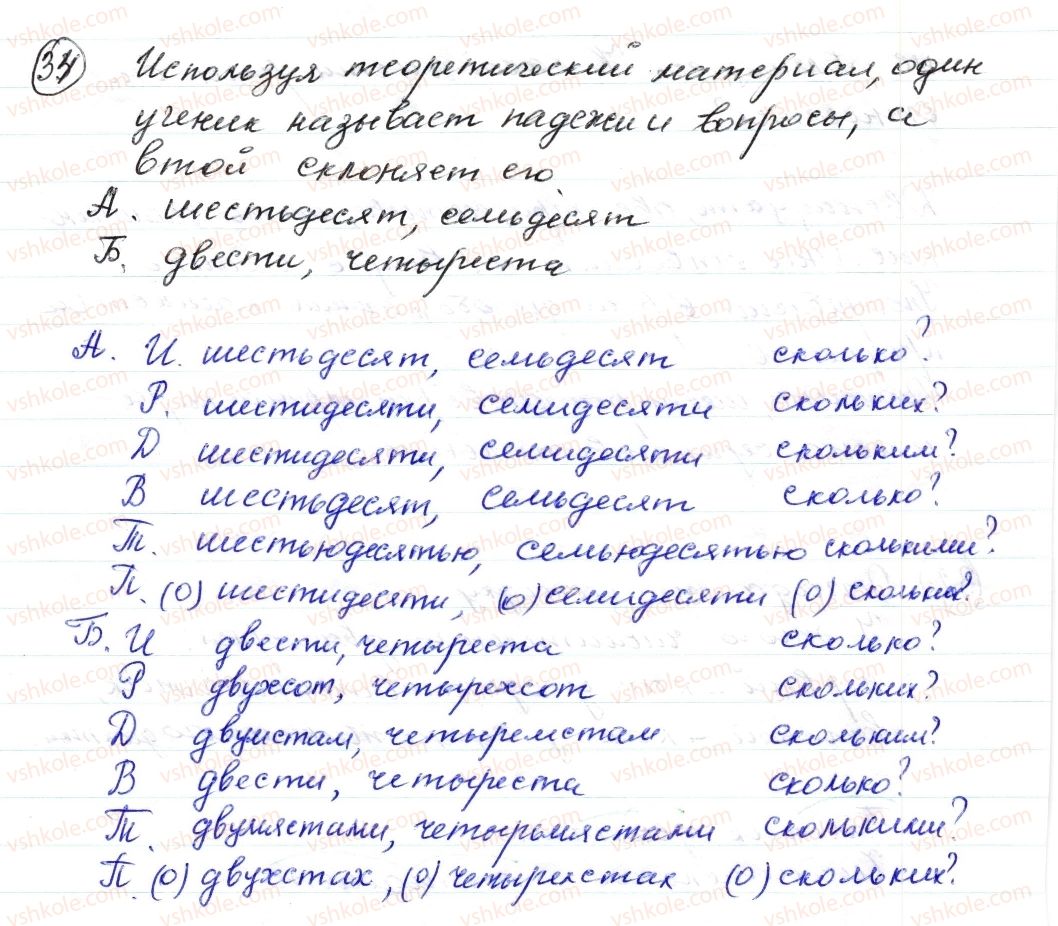 34 Используя теоретический материал, один
ученик называет падежи и вопросы, а
втой склоняет его.
А. шестьдесят, семьдесят
Б. двести, четыреста
А. И. шестьдесят, семьдесят сколько?
Р. шестидесяти, семидесяти скольких?
Д шестидесяти, семидесяти скольким?
В шестьдесят, семьдесят сколько?
Т. шестьюдесятью, семьюдесятью сколькими?
П. (о) шестидесяти, (о) семидесяти (о) скольких?
Б. И двести, четыреста сколько?
Р двухсот, четырехсот скольких?
Д двумстам, четыремстам скольким?
В двести, четыреста сколько?
Т. двумястами, четырьмястами сколькими?
П. (о) двухстах, (о) четырехстах (о) скольких?